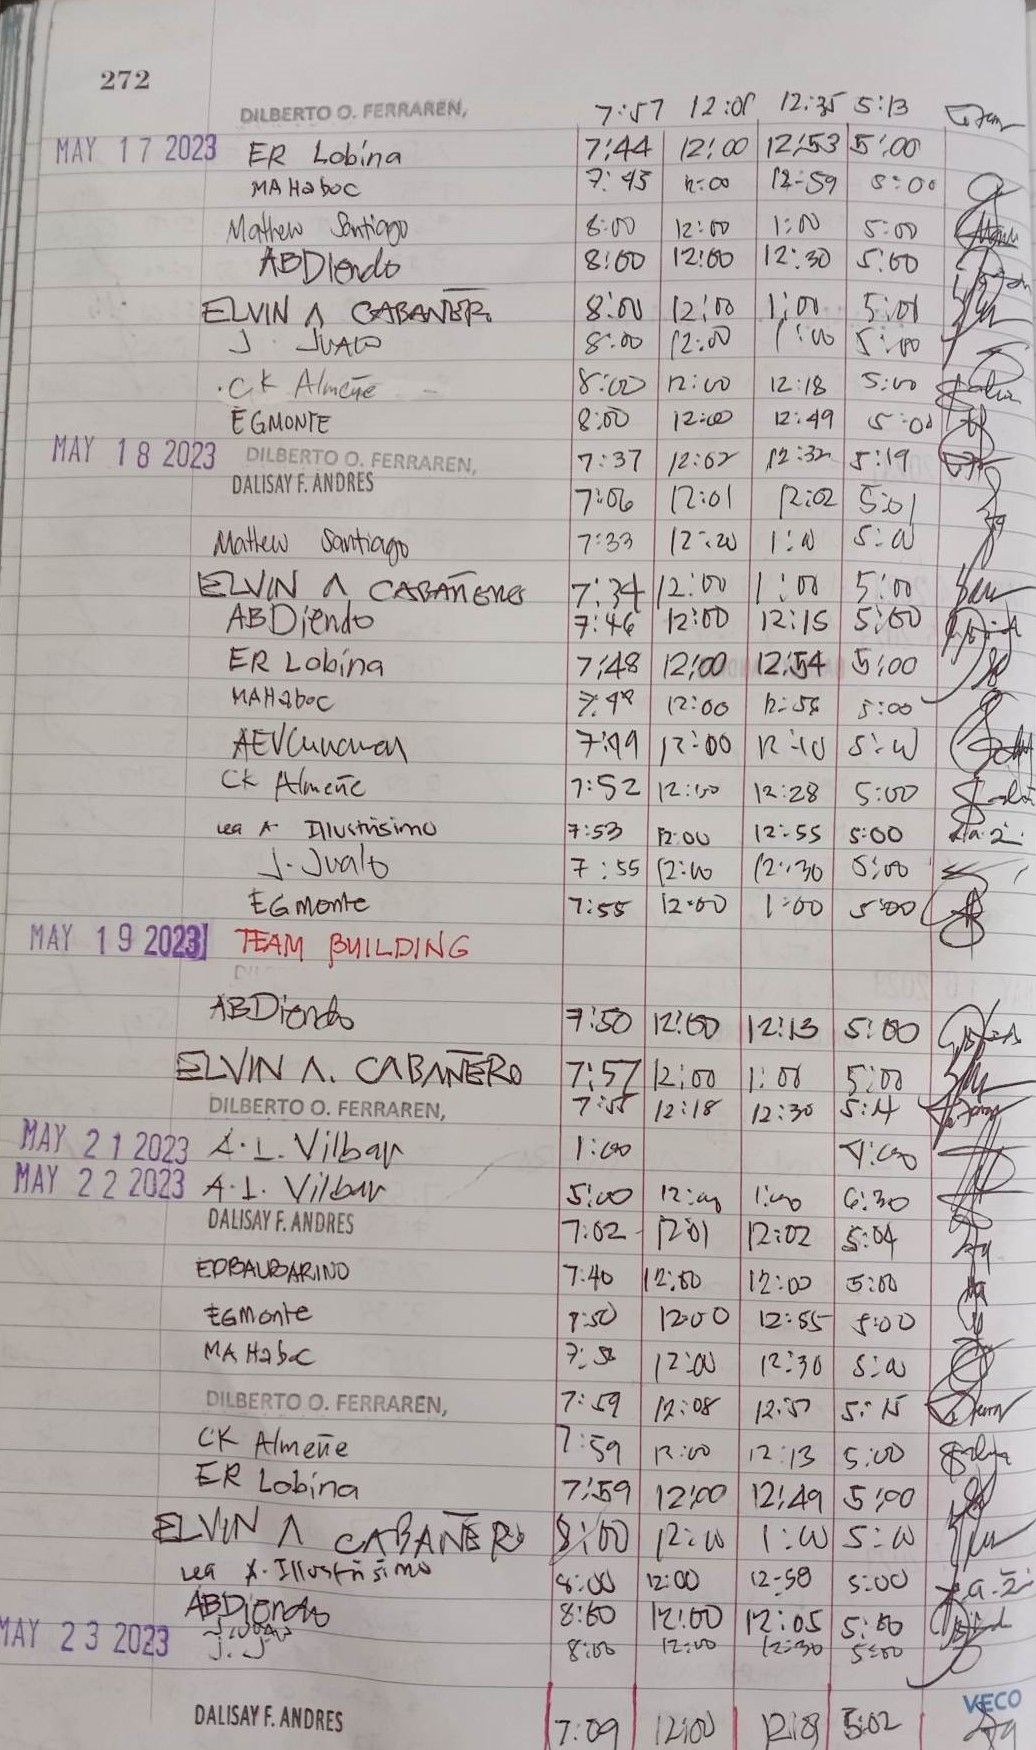 272
DILBERTO O. FERRAREN, 7:57 12:01 12:35 5:13
MAY 17 2023 ER Lobina 7:44 12:00 12:53 5:00
MAHaboc 7:45 12:00 12:59 5:00
Mathew Santiago 8:00 12:00 1:00 5:00
ABDiendo 8:00 12:00 12:30 5:00
ELVIN A CABAÑER 8:00 12:00 1:00 5:01
J. JUALO 8:00 12:00 1:00 5:00
CK Almeñe 8:00 12:00 12:18 5:00
EGMONTE 8:00 12:00 12:49 5:00
MAY 18 2023 DILBERTO O. FERRAREN, 7:37 12:02 12:32 5:19
DALISAY F. ANDRES 7:06 12:01 12:02 5:01
Mathew Santiago 7:33 12:20 1:00 5:00
ELVIN A CABAÑERO 7:34 12:00 1:00 5:00
ABDiendo 7:46 12:00 12:15 5:00
ER Lobina 7:48 12:00 12:54 5:00
MAHaboc 7:48 12:00 5:00
7:49 12:00 12:10 5:00
CK Almeñe 7:52 12:00 12:28 5:00
Lea A Illustrisimo 7:53 12:00 12:55 5:00
J. Jualo 7:55 12:00 12:30 5:00
EGmonte 7:55 12:00 1:00 5:00
MAY 19 2023 TEAM BUILDING
ABDiendo 7:50 12:00 12:13 5:00
ELVIN A. CABAÑERO 7:57 12:00 1:00 5:00
DILBERTO O. FERRAREN, 7:55 12:18 12:30 5:14
MAY 21 2023 A.L. Vilbar 1:00
MAY 22 2023 A.L. Vilbar 5:00 12:00 1:00 6:30
DALISAY F. ANDRES 7:02 12:01 12:02 5:04
EDBALBARINO 7:40 12:00 12:00 5:00
EGmonte 7:50 12:00 12:55 5:00
MAHaboc 12:00 12:30 5:00
DILBERTO O. FERRAREN, 7:59 12:08 5:15
CK Almeñe 7:59 12:00 12:13 5:00
ER Lobina 7:59 12:00 12:49 5:00
ELVIN A CABAÑERO 8:00 12:00 1:00 5:00
Lea A. Illustrisimo 8:00 12:00 12:58 5:00
ABDiendo 8:00 12:00 12:05 5:00
MAY 23 2023 J.J 8:00 12:00 12:30 5:00
VECO
DALISAY F. ANDRES 7:09 12:00 12:01 5:02